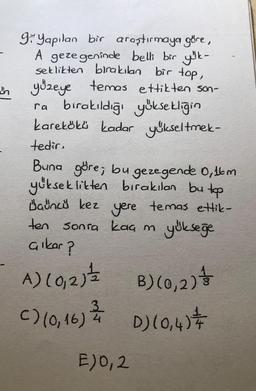 9. Yapılan bir araştırmaya göre,
A gezegeninde belli bir yük-
seklikten bırakılan bir top,
yüzeye temas ettikten son-
ra bırakıldığı yüksekliğin
karekökü kadar yükseltmek-
tedir.
Buna göre; bu gezegende 0,16m
yükseklikten bırakılan bu top
üçüncü kez yere temas ettik-
ten sonra kaç m yükseğe
çıkar?
A) (0,2)^1/2 B) (0,2)^1/8
C) (0,16)^3/4 D) (0,4)^1/4
E) 0,2